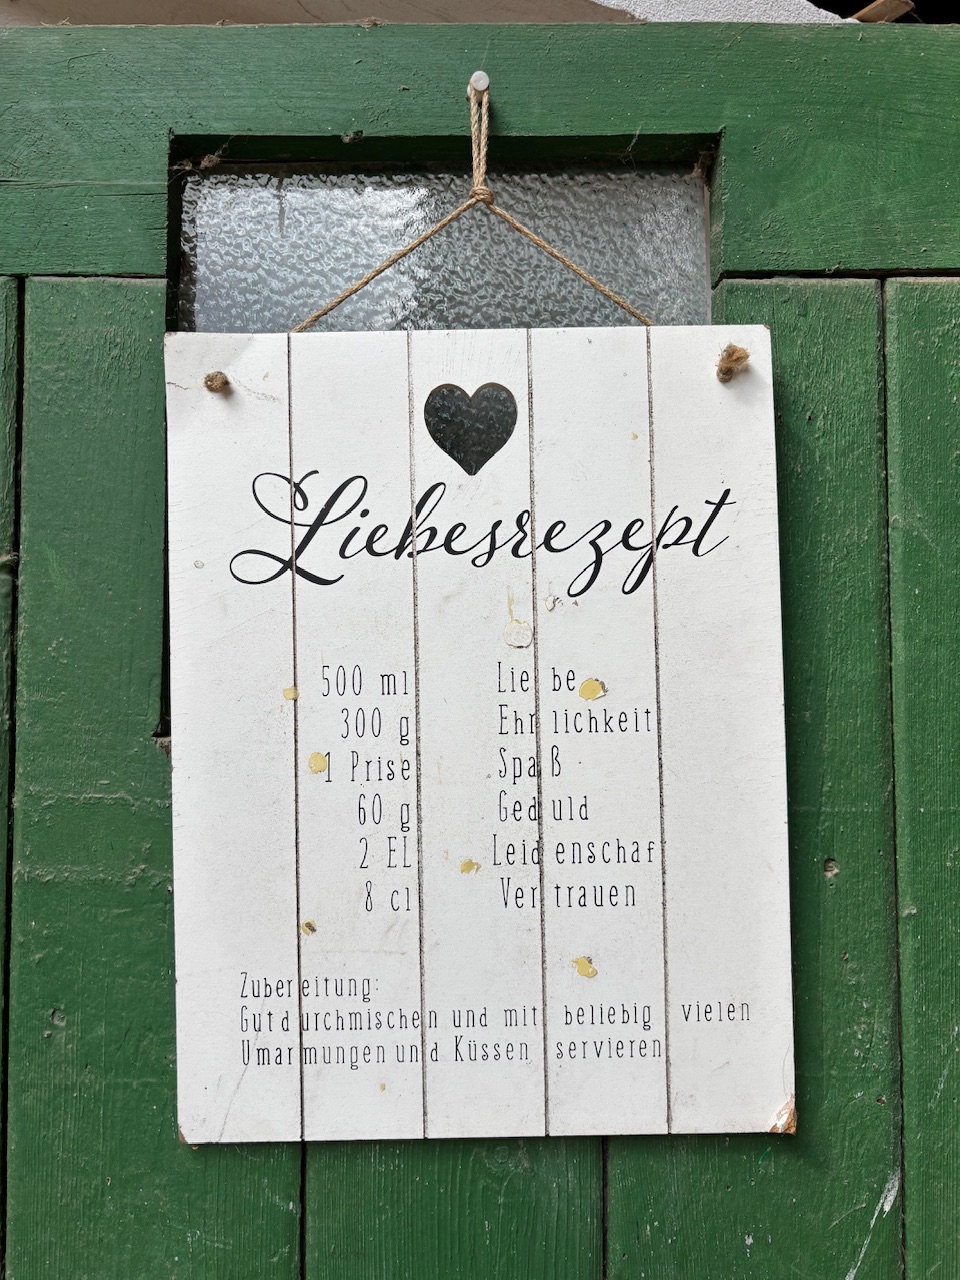 Liebesrezept
500 ml Liebe
300 g Ehrlichkeit
1 Prise Spaß
60 g Geduld
2 EL Leidenschaf
8 cl Vertrauen
Zubereitung:
Gut durchmischen und mit beliebig vielen
Umarmungen und Küssen servieren